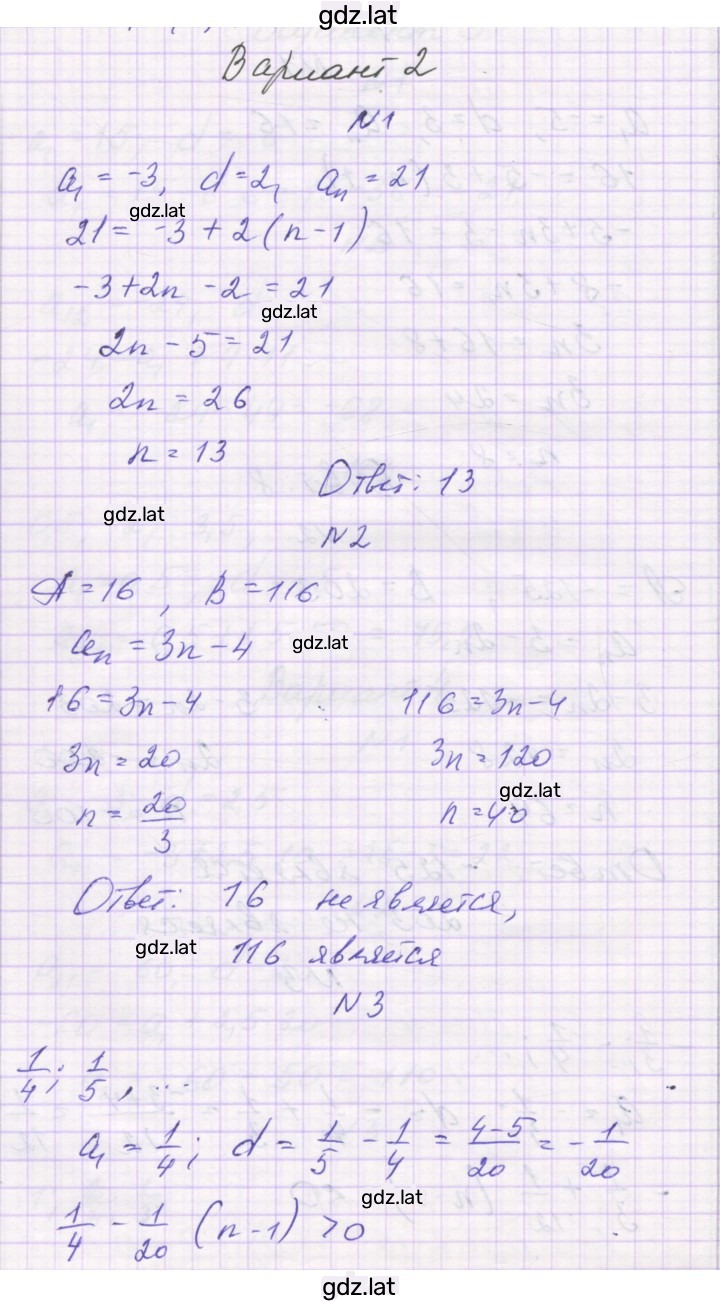 gdz.lat
Вариант 2
N1
a₁ = -3, d = 2, aₙ = 21
gdz.lat
21 = -3 + 2(n-1)
-3 + 2n - 2 = 21
gdz.lat
2n - 5 = 21
2n = 26
n = 13
Ответ: 13
gdz.lat
N2
A = 16, B = 116
aₙ = 3n - 4 gdz.lat
16 = 3n - 4 116 = 3n - 4
3n = 20 3n = 120
gdz.lat
n = 20/3 n = 40
Ответ: 16 не является,
gdz.lat 116 является
N3
1/4; 1/5, ...
a₁ = 1/4; d = 1/5 - 1/4 = (4-5)/20 = -1/20
gdz.lat
1/4 - 1/20 (n-1) > 0
gdz.lat